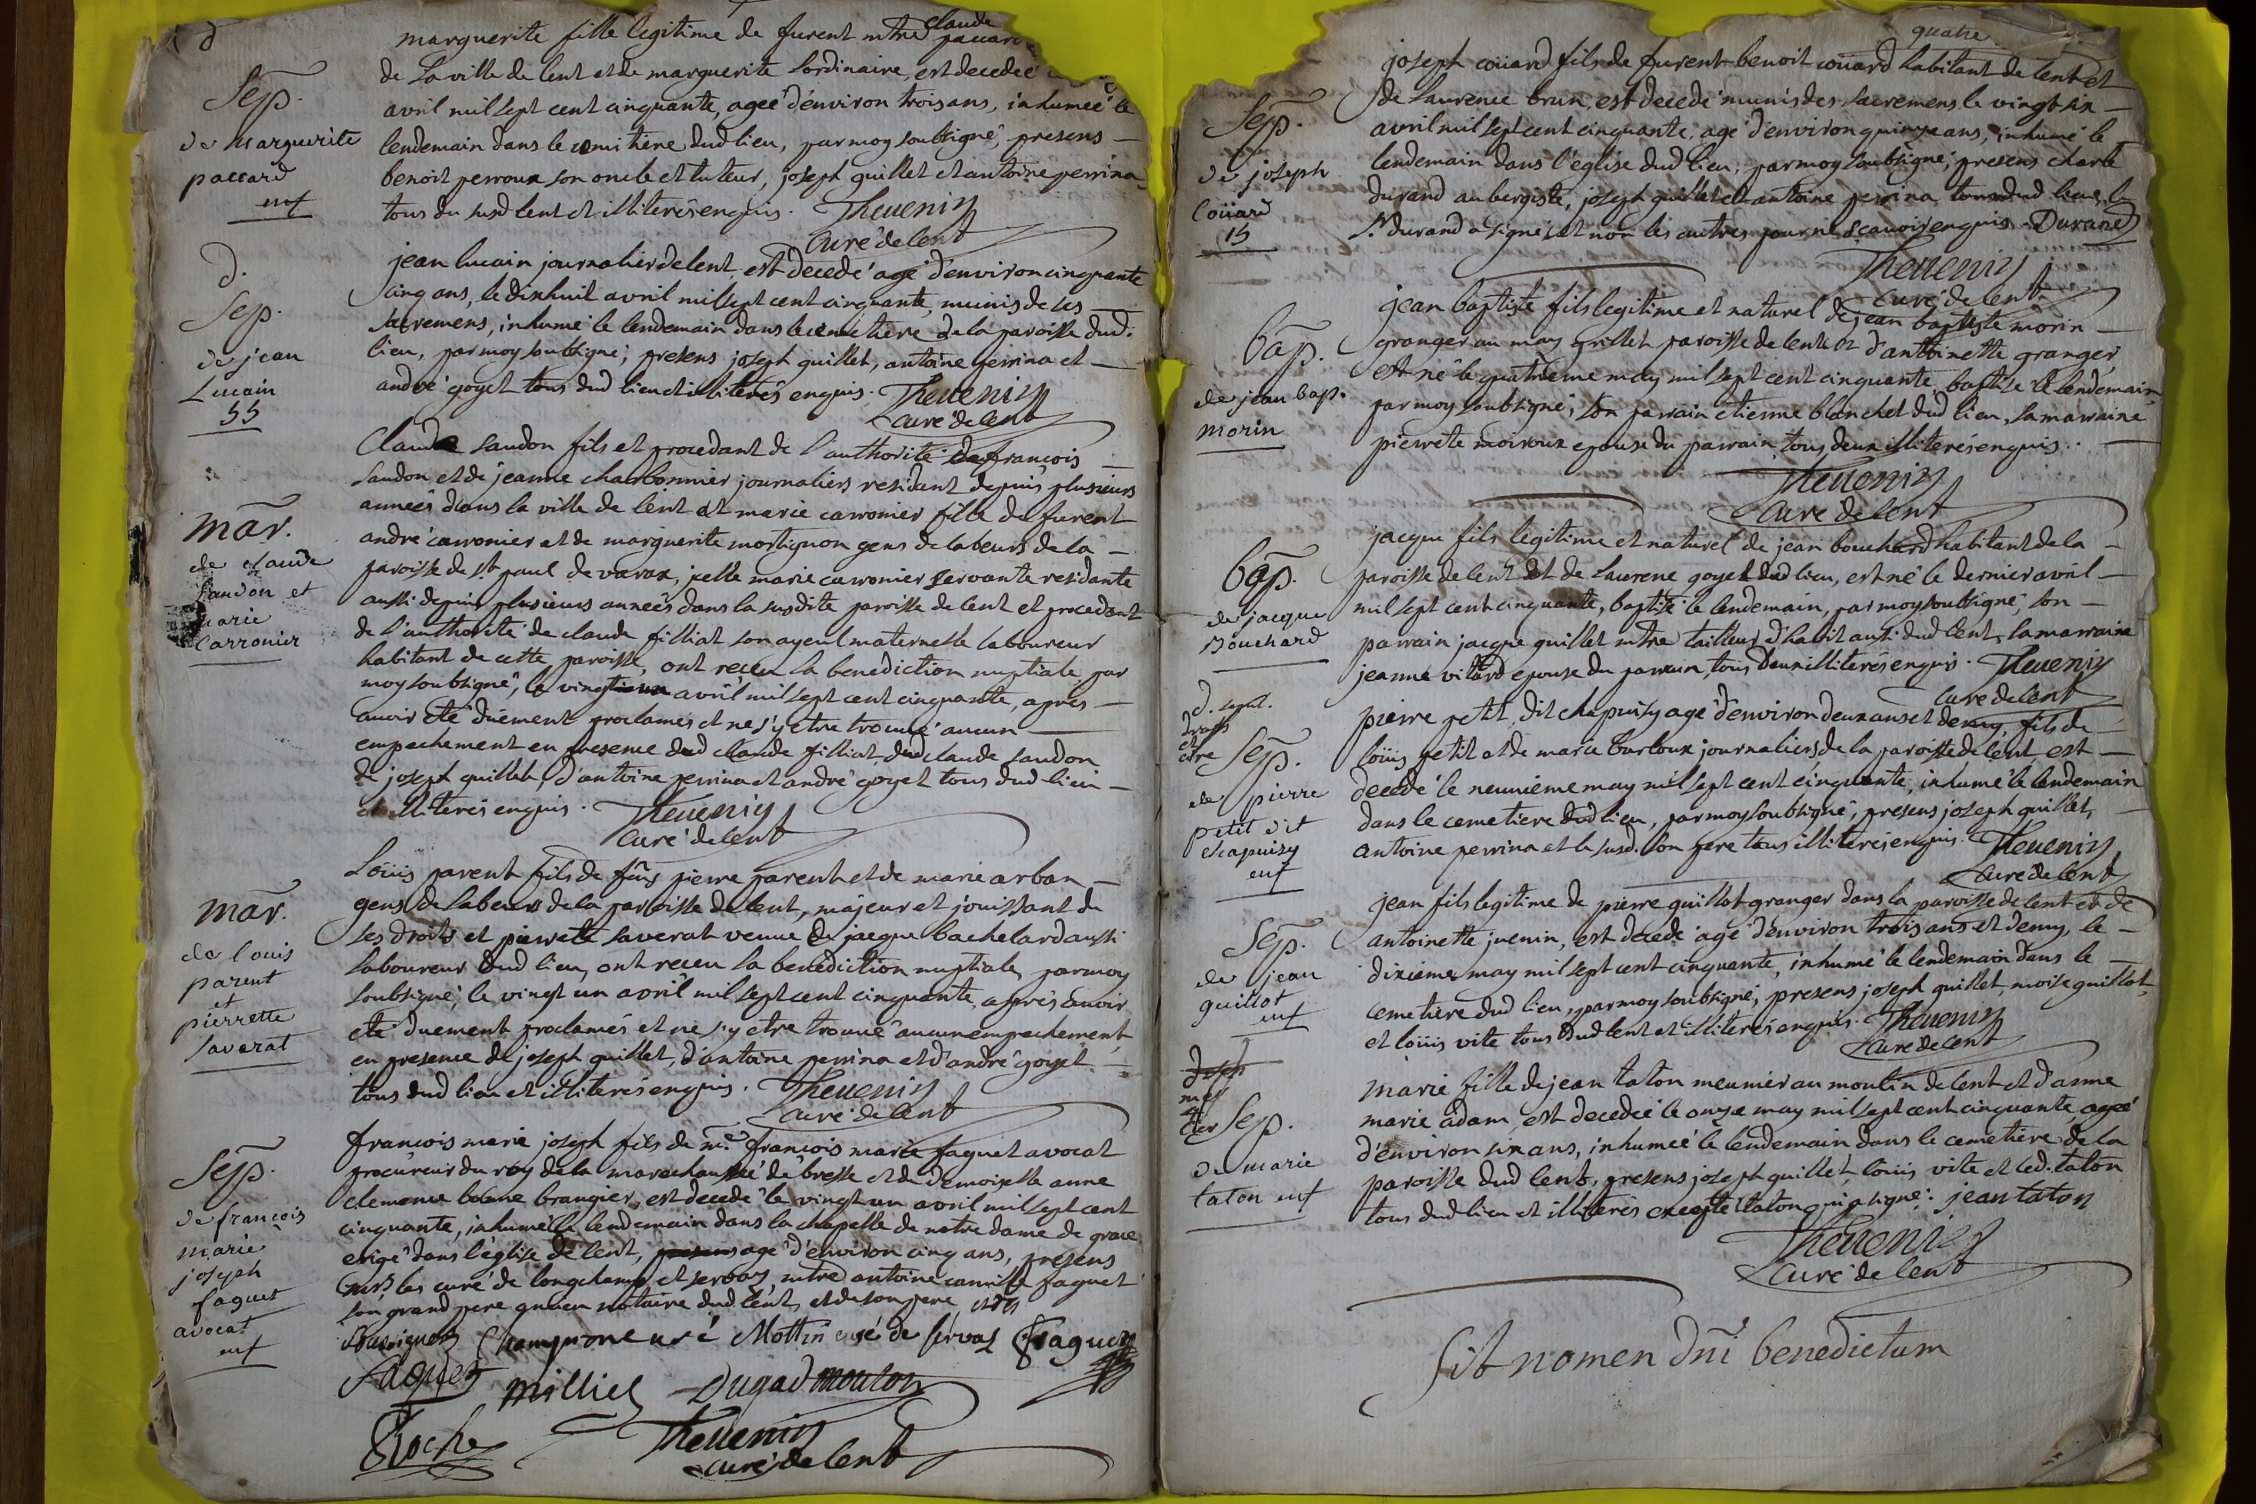 d
Sep.
de Marguerite
paccard
enf
marguerite fille legitime de furent mtre claude paccard
de la ville de lent et de marguerite lordinaire, est decedeé
avril mil sept cent cinquante, ageé d'environ trois ans, inhumeé le
lendemain dans le cemitiere dud lieu, par moy soubsigné, presens
benoit perroux son oncle et tuteur, joseph guillet et antoine perrina
tous du susd lent et illiterés enquis. Theuenin
Curé de lent
d.
Sep.
de jean
Lucain
55
jean lucain journalier de lent, est decedé agé d'environ cinquante
cinq ans, le dixhuit avril mil sept cent cinquante, munis de ses
sacremens, inhumé le lendemain dans le cemetiere de la paroisse dud.
lieu, par moy soubsigné; presens joseph guillet, antoine perrina et
andré goyet tous dud lieu et illiterés enquis. Theuenin
Curé de lent
mar.
de claude
Saudon et
marie
Carronier
Claude Saudon fils et procedant de l'authorité de françois
Saudon et de jeanne charbonnier journaliers residant depuis plusieurs
années dans la ville de lent et marie carronier fille de furent
andré carronier et de marguerite mortignon gens de labeurs de la
paroisse de st paul de varax, jcelle marie carronier servante residante
aussi depuis plusieurs années dans la susdite paroisse de lent et procedant
de l'authorité de claude filliat son ayeul maternelle laboureur
habitant de cette paroisse, ont reçeu la benediction nuptiale par
moy soubsigné, le vingt avril mil sept cent cinquante, apres
auoir eté duëment proclamés et ne s'y etre trouué aucun
empechement en presence dud claude filliat, dud claude saudon
de joseph guillet, d'antoine perrina et andré goyet tous dud lieu
et illiterés enquis. Theuenin
Curé de lent
mar.
de louis
parent
et
pierrette
Saverat
Loüis parent fils de pierre parent et de marie arban
gens de labeurs de la paroisse de lent, majeur et jouissant de
ses droits et pierrette saverat veuue de jacque bachelard aussi
laboureur dud lieu, ont receu la benediction nuptiale, par moy
soubsigné, le vingt un avril mil sept cent cinquante, aprés auoir
eté duement proclamés et ne s'y etre trouué aucun empechement,
en presence de joseph guillet, d'antoine perrina et d'andré goyet
tous dud lieu et illiterés enquis. Theuenin
Curé de lent
Sep.
de françois
marie
joseph
faguet
avocat
enf
françois marie joseph fils de me. françois marie faguet avocat
procureur du roy de la marechaussée de bresse et de demoiselle anne
clemence brangier, est decedé le vingt un avril mil sept cent
cinquante, inhumé le lendemain dans la chapelle de notre dame de grace
erigé dans l'église de lent, agé d'environ cinq ans, presens
mrs les curé de longchamp et servas, mtre antoine camille faguet
son grand pere notaire dud lent, et de son pere,
soussignés Champion curé Mottin curé de servas Faguet
Faguet Milliet Dugad mouton
Roche Theuenin
Curé de lent
quatre
Sep.
de joseph
Coüard
15
joseph coüard fils de furent benoit coüard habitant de lent et
de laurence brun, est decedé munis des sacremens le vingt six
avril mil sept cent cinquante, agé d'environ quinze ans, inhumé le
lendemain dans l'eglise dud lieu, par moy soubsigné, presens charle
durand aubergiste, joseph guillet et antoine perrina tous dud lieu, le
sr durand a signé et non les autres pour ne sçauoir enquis. Durand
Theuenin
Curé de lent
bap.
de jean bap.
morin
jean baptiste fils legitime et naturel de jean baptiste morin
granger au may grillet paroisse de lent et d'anthoinette granger,
est né le quatrieme may mil sept cent cinquante, baptisé le lendemain,
par moy soubsigné, son parrain etienne blanchet dud lieu, sa marraine
pierrete moiroux epouse du parrain, tous deux illiterés enquis.
Theuenin
Curé de lent
bap.
de jacque
Bouchard
jacque fils legitime et naturel de jean bouchard habitant de la
paroisse de lent et de laurence goyet dud lieu, est né le dernier avril
mil sept cent cinquante, baptisé le lendemain, par moy soubsigné, son
parrain jacque guillet mtre tailleur d'habit aussi dud lent, la marraine
jeanne vitard epouse du parrain, tous deux illiterés enquis. Theuenin
Curé de lent
Sep.
de pierre
petit dit
chapuisy
enf
pierre petit dit chapuisy agé d'environ deux ans et demy, fils de
loüis petit et de marie burtoux journaliers de la paroisse de lent, est
decedé le neuuieme may mil sept cent cinquante, inhumé le lendemain
dans le cemetiere dud lieu, par moy soubsigné, presens joseph guillet,
antoine perrina et le susd. son pere tous illiterés enquis. Theuenin
Curé de lent
Sep.
de jean
guillot
enf
jean fils legitime de pierre guillot granger dans la paroisse de lent et de
antoinette juenin, est decedé agé d'environ trois ans et demy, le
dixieme may mil sept cent cinquante, inhumé le lendemain dans le
cemetiere dud lieu, par moy soubsigné, presens joseph guillet, moise guillot,
et loüis vite tous dud lent et illiterés enquis. Theuenin
Curé de lent
Sep.
de marie
taton enf
marie fille de jean taton meunier au moulin de lent et d'anne
marie adam, est decedeé le onze may mil sept cent cinquante, ageé
d'environ six ans, inhumeé le lendemain dans le cemetiere de la
paroisse dud lent, presens joseph guillet, loüis vite et led. taton
tous dud lieu et illiterés excepté taton qui a signé. jean taton
Theuenin
Curé de lent
Sit nomen dni benedictum